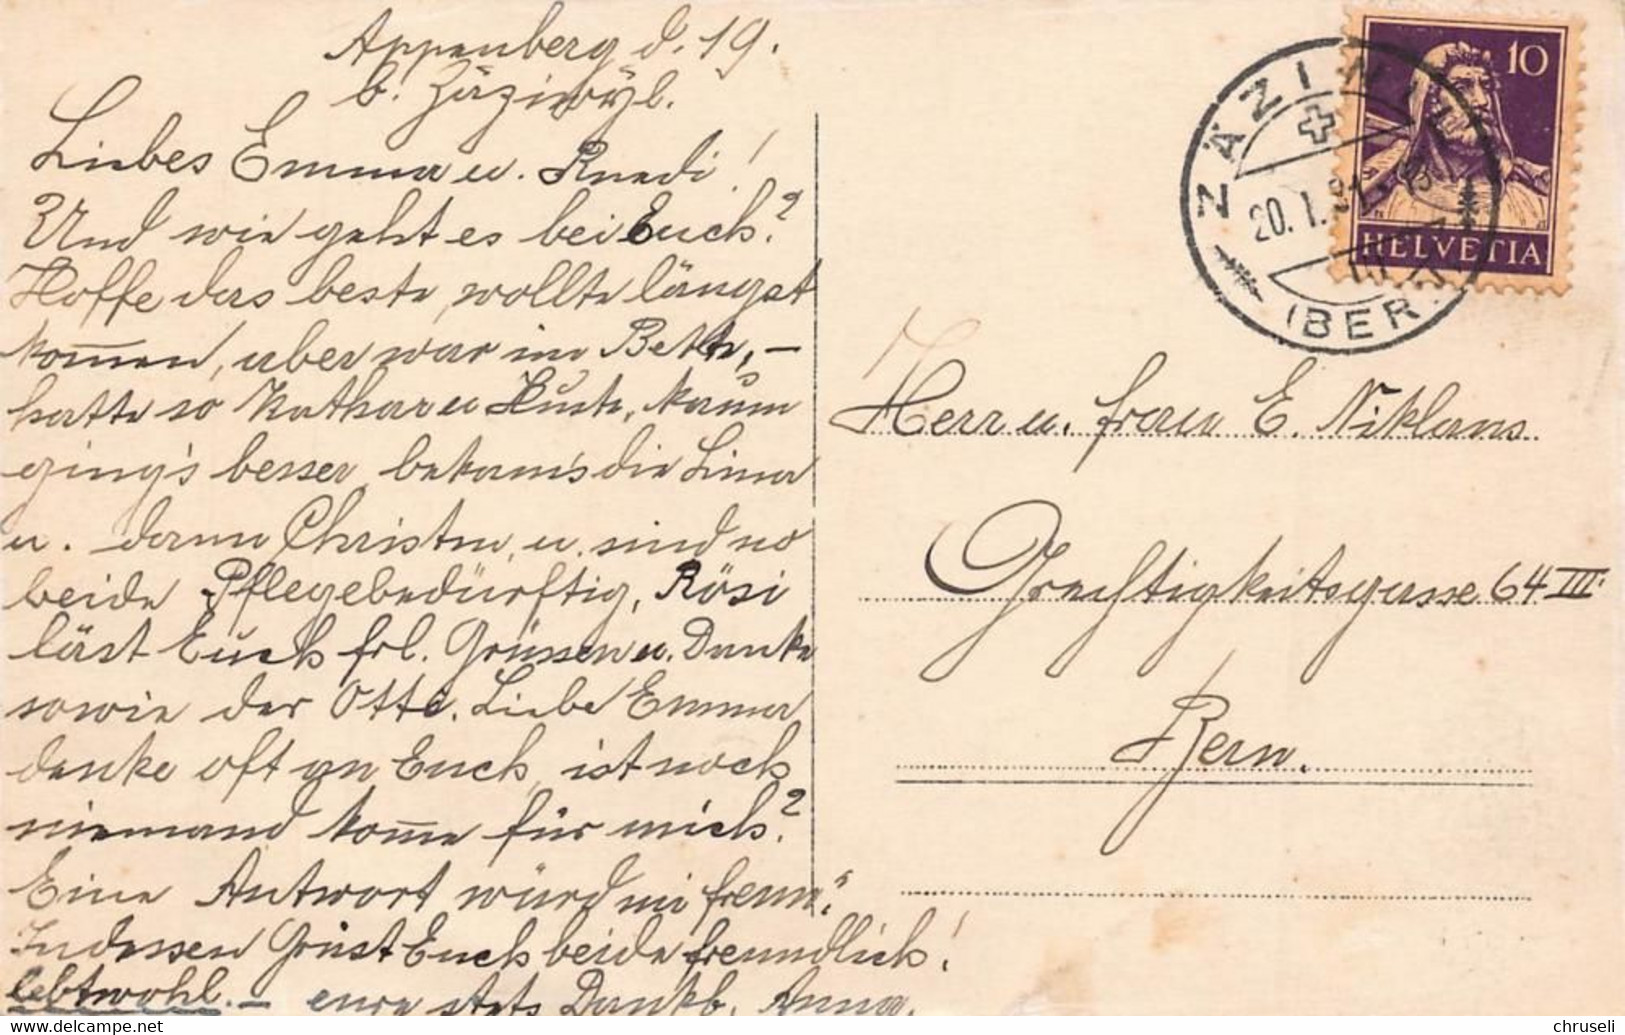 Appenberg d. 19.
b. Zäziwyl.
Liebes Emma u. Ruedi!
Und wie geht es bei Euch?
Hoffe das beste, wollte längst
kom̄en, aber war im Bett, –
hatte so Kathar u Huste, kaum
ging's besser, bekam's die Lina
u. dann Christen, u. sind so
beide Pflegebedürftig, Rösi
läst Euch frl. Grüssen u. Danke
sowie der Otto. Liebe Emma
denke oft an Euch, ist noch
niemand kom̄e für mich?
Eine Antwort würd mi freun."
Indessen Grüst Euch beide freundlich!
lebtwohl. – eure stets Dankb. Anna.
10
HELVETIA
ZÄZIWIL
20. I. 21
(BERN)
Herr u. frau E. Niklaus
Grechtigkeitsgasse 64 III.
Bern.
chruseli